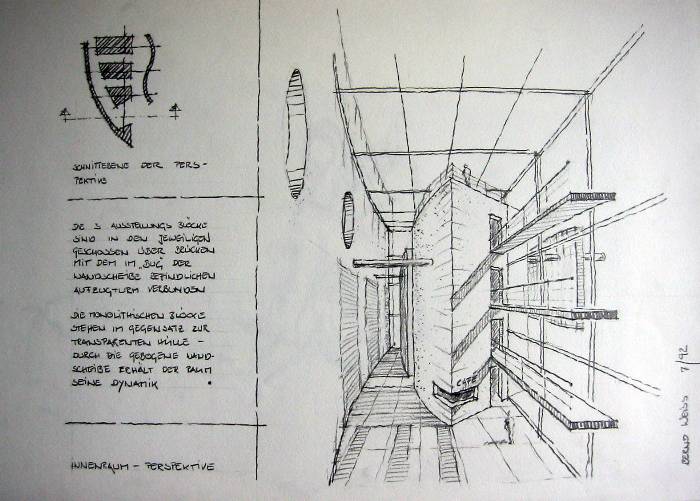 SCHNITTEBENE DER PERS-
PEKTIVE
DIE 3 AUSSTELLUNGS BLÖCKE
SIND IN DEN JEWEILIGEN
GESCHOSSEN ÜBER BRÜCKEN
MIT DEM IM „BUG" DER
WANDSCHEIBE BEFINDLICHEN
AUFZUGTURM VERBUNDEN
DIE MONOLITHISCHEN BLÖCKE
STEHEN IM GEGENSATZ ZUR
TRANSPARENTEN HÜLLE –
DURCH DIE GEBOGENE WAND-
SCHEIBE ERHÄLT DER RAUM
SEINE DYNAMIK
INNENRAUM – PERSPEKTIVE
CAFE
BERND 7/92